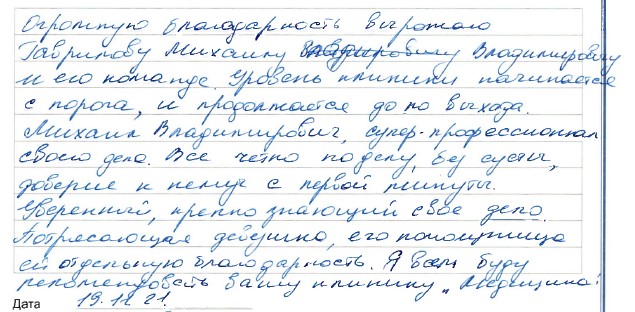 Огромную благодарность выражаю
Гаврилову Михаилу Владимировичу Владимировичу
и его команде. Уровень клиники начинается
с порога, и продолжается до по выхода.
Михаил Владимирович, супер-профессионал
своего дела. Все четко по делу, без суеты,
доверие к нему с первой минуты.
Уверенный, крепко знающий свое дело.
Потрясающая девушка, его помощница
ей отдельную благодарность. Я всем буду
рекомендовать вашу клинику „Медицина"
Дата 19.12.21.